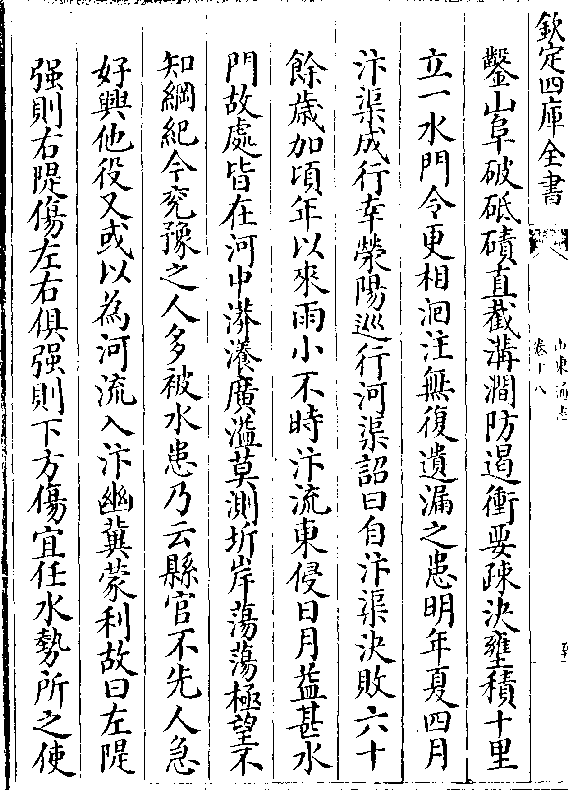 欽定四庫全書
山東通志
卷十八
鑿山阜破砥磧直截溝澗防遏衝要疎決壅積十里
立一水門令更相洄注無復遺漏之患明年夏四月
汴渠成行幸滎陽巡行河渠詔曰自汴渠決敗六十
餘歲加頃年以來雨小不時汴流東侵日月益甚水
門故處皆在河中漭瀁廣溢莫測圻岸蕩蕩極望不
知綱紀今兖豫之人多被水患乃云縣官不先人急
好興他役又或以為河流入汴幽冀蒙利故曰左隄
强則右隄傷左右俱强則下方傷宜任水勢所之使